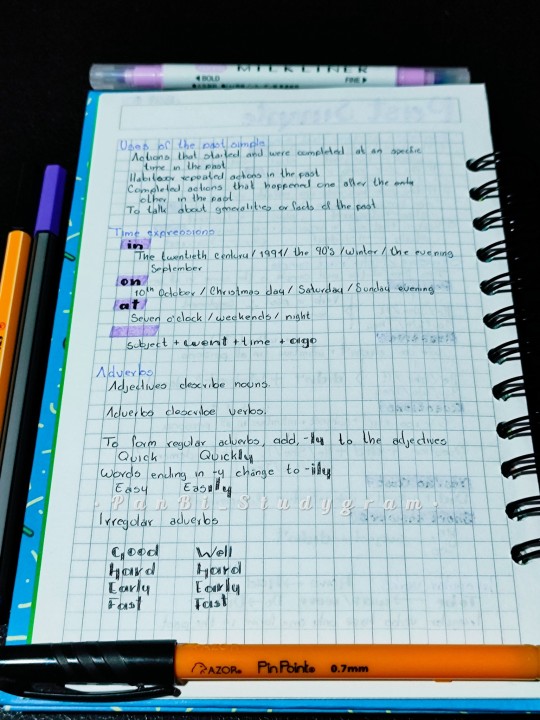 MILKLINER
◀BOLD FINE▶
Uses of the past simple
Actions that started and were completed at an specific
time in the past
Habits or repeated actions in the past
Completed actions that happened one after the
other in the past
To talk about generalities or facts of the past
Time expressions
in
The twentieth century / 1991 / the 90's / Winter / the evening
September
on
10th October / Christmas day / Saturday / Sunday evening
at
Seven o'clock / weekends / night
subject + went + time + ago
Adverbs
Adjectives describe nouns.
Adverbs describe verbs.
To form regular adverbs, add, -ly to the adjectives
Quick Quickly
Words ending in -y change to -ily
Easy Easily
·PanBi_Studygram·
Irregular adverbs
Good Well
Hard Hard
Early Early
Fast Fast
AZOR® PinPoint® 0.7mm